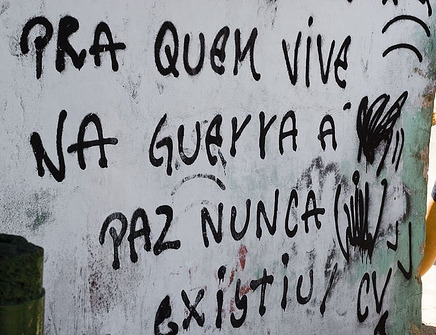 PRA QUEM VIVE
NA GUERRA A
PAZ NUNCA
EXISTIU! CV